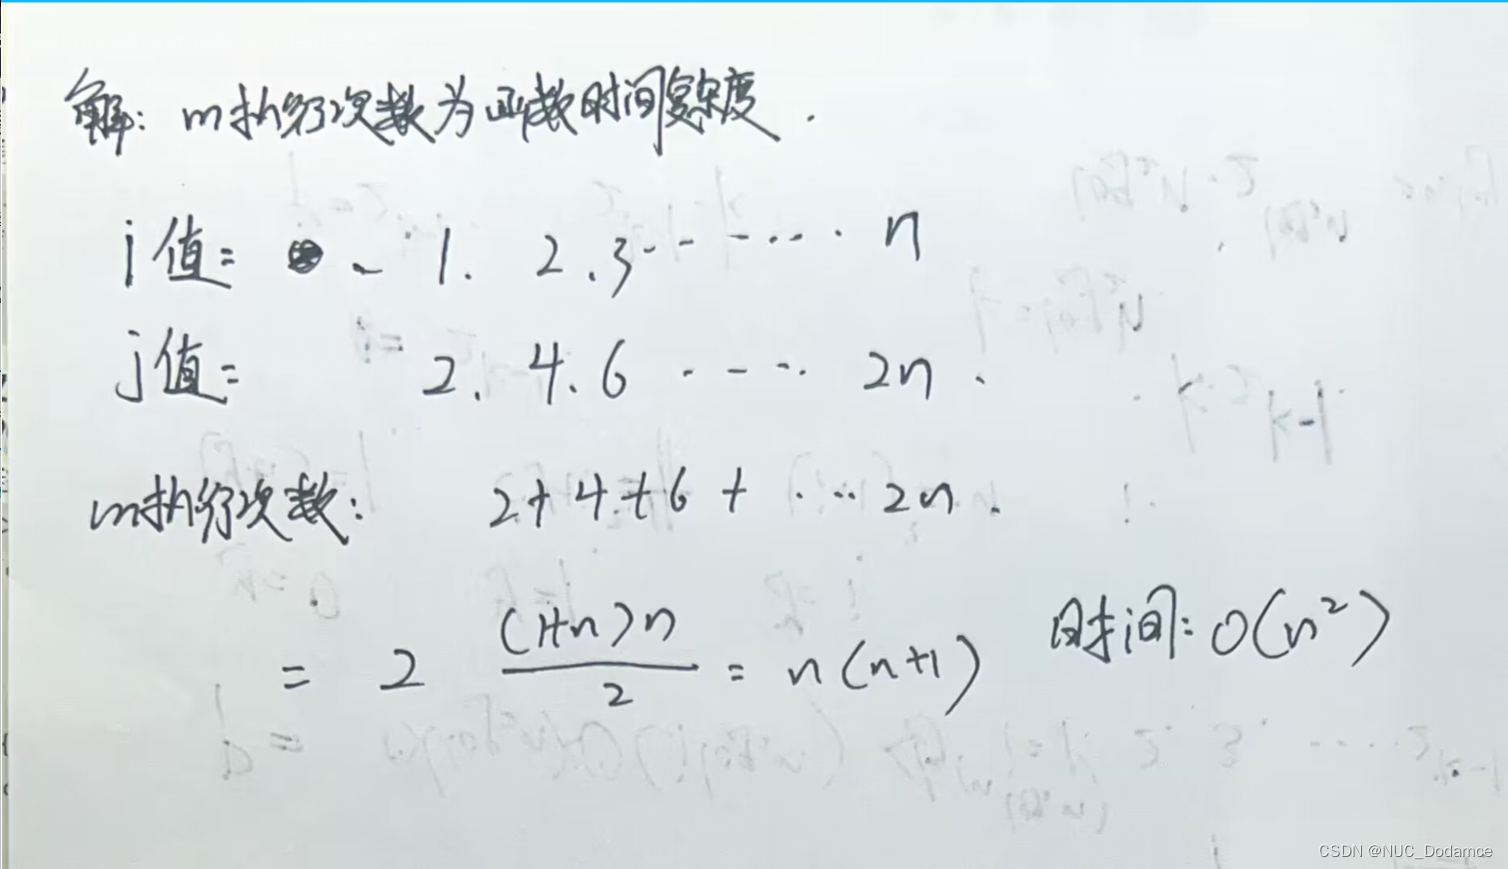 解: m执行次数为函数时间复杂度.
i值: 1. 2.3······ n
j值: 2. 4. 6 ····· 2n.
m执行次数: 2+4+6+ ···2n.
= 2 (1+n)n/2 = n(n+1) 时间: O(n²)
CSDN @NUC_Dodamce